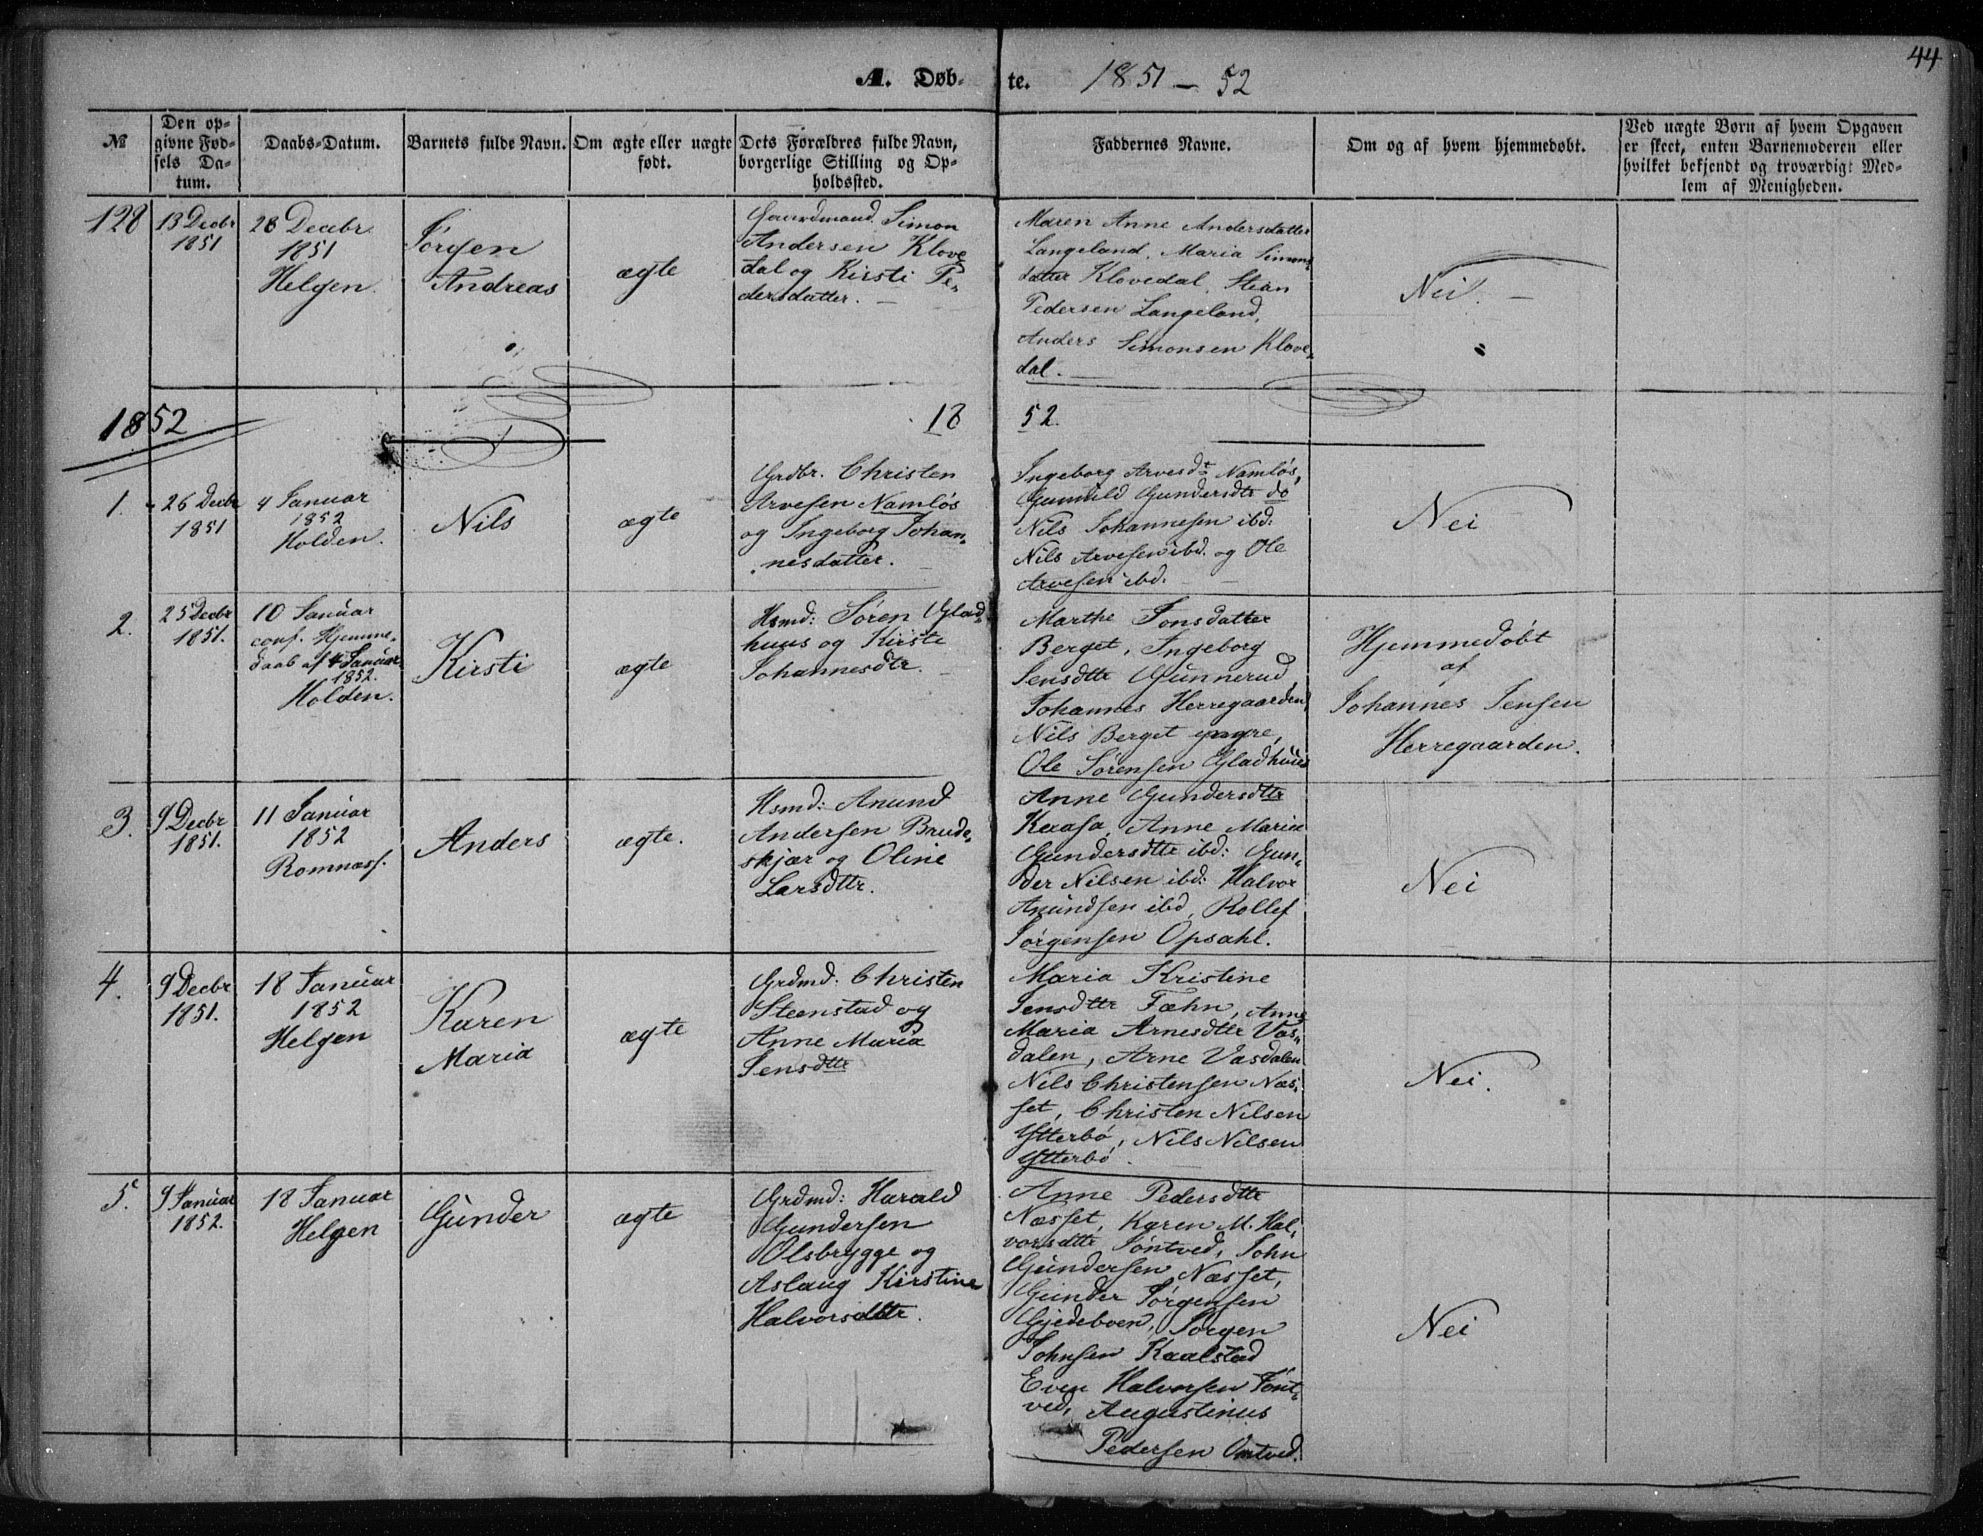 44
A. Døb-te. 1851 – 52
№
Den op-
givne Fød-
sels Da-
tum.
Daabs-Datum.
Barnets fulde Navn.
Om ægte eller uægte
født.
Dets Forældres fulde Navn,
borgerlige Stilling og Op-
holdssted.
Faddernes Navne.
Om og af hvem hjemmedøbt.
Ved uægte Børn af hvem Opgaven
er skeet, enten Barnemoderen eller
hvilket bekjendt og troværdigt Med-
lem af Menigheden.
128
13 Decbr
1851
28 Decbr
1851
Helgen.
Jørgen
Andreas
ægte
Gaardmand. Simon
Andersen Klove
dal og Kirsti Pe-
dersdatter. –
Maren Anne Andersdatter
Langeland, Maria Simons
datter Klovedal, Steen
Pedersen Langeland,
Anders Simonsen Klove-
dal. –
Nei. –
1852
18 52.
1.
26 Decbr
1851
4 Januar
1852
Holden.
Nils
ægte
Grdbr. Christen
Arvesen Namløs
og Ingeborg Johan-
nesdatter. –
Ingeborg Arvesdt Namløs,
Gunnild Gundersdtr do
Nils Johannesen ibd:
Nils Arvesen ibd. og Ole
Arvesen ibd. –
Nei
2.
25 Decbr
1851.
10 Januar
conf. Hjemme-
daab af 4 Januar
1852.
Holden.
Kirsti
ægte
Hsmd: Søren Glad-
huus og Kirste
Johannesdtr. –
Marthe Jonsdatter
Berget, Ingeborg
Jensdttr Gunnerud
Johannes Herregaarden,
Nils Berget yngre,
Ole Sørensen Gladhuus
Hjemmedøbt
af
Johannes Jensen
Herregaarden.
3.
9 Decbr
1851.
11 Januar
1852
Romnæss.
Anders
ægte.
Hsmd: Anund
Andersen Brude-
skjær og Oline
Larsdttr.
Anne Gundersdttr
Kaasa, Anne Maria
Gundersdttr ibd: Gun-
der Nilsen ibd: Halvor
Anundsen ibd, Rollef
Jørgensen Opsahl.
Nei
4.
9 Decbr
1851.
18 Januar
1852
Helgen
Karen
Maria
ægte
Grdmd: Christen
Steenstad og
Anne Maria
Jensdttr
Maria Kristine
Jensdttr Fæhn, Anne
Maria Arnesdttr Vas-
dalen, Arne Vasdalen
Nils Christensen Næs-
set, Christen Nilsen
Ytterbø, Nils Nilsen
Ytterbø.
Nei.
5.
9 Januar
1852.
18 Januar
Helgen
Gunder
ægte
Grdmd: Harald
Gundersen
Olsbrygge og
Aslaug Kirstine
Halvorsdttr.
Anne Pedersdttr
Næsset, Karen M. Hal-
vorsdttr Tøntved, John
Gundersen Næsset,
Gunder Jørgensen
Gjedeboen, Jørgen
Johnsen Kaalstad
Even Halvorsen Tønt-
ved, Augustinus
Pedersen Omtved.
Nei